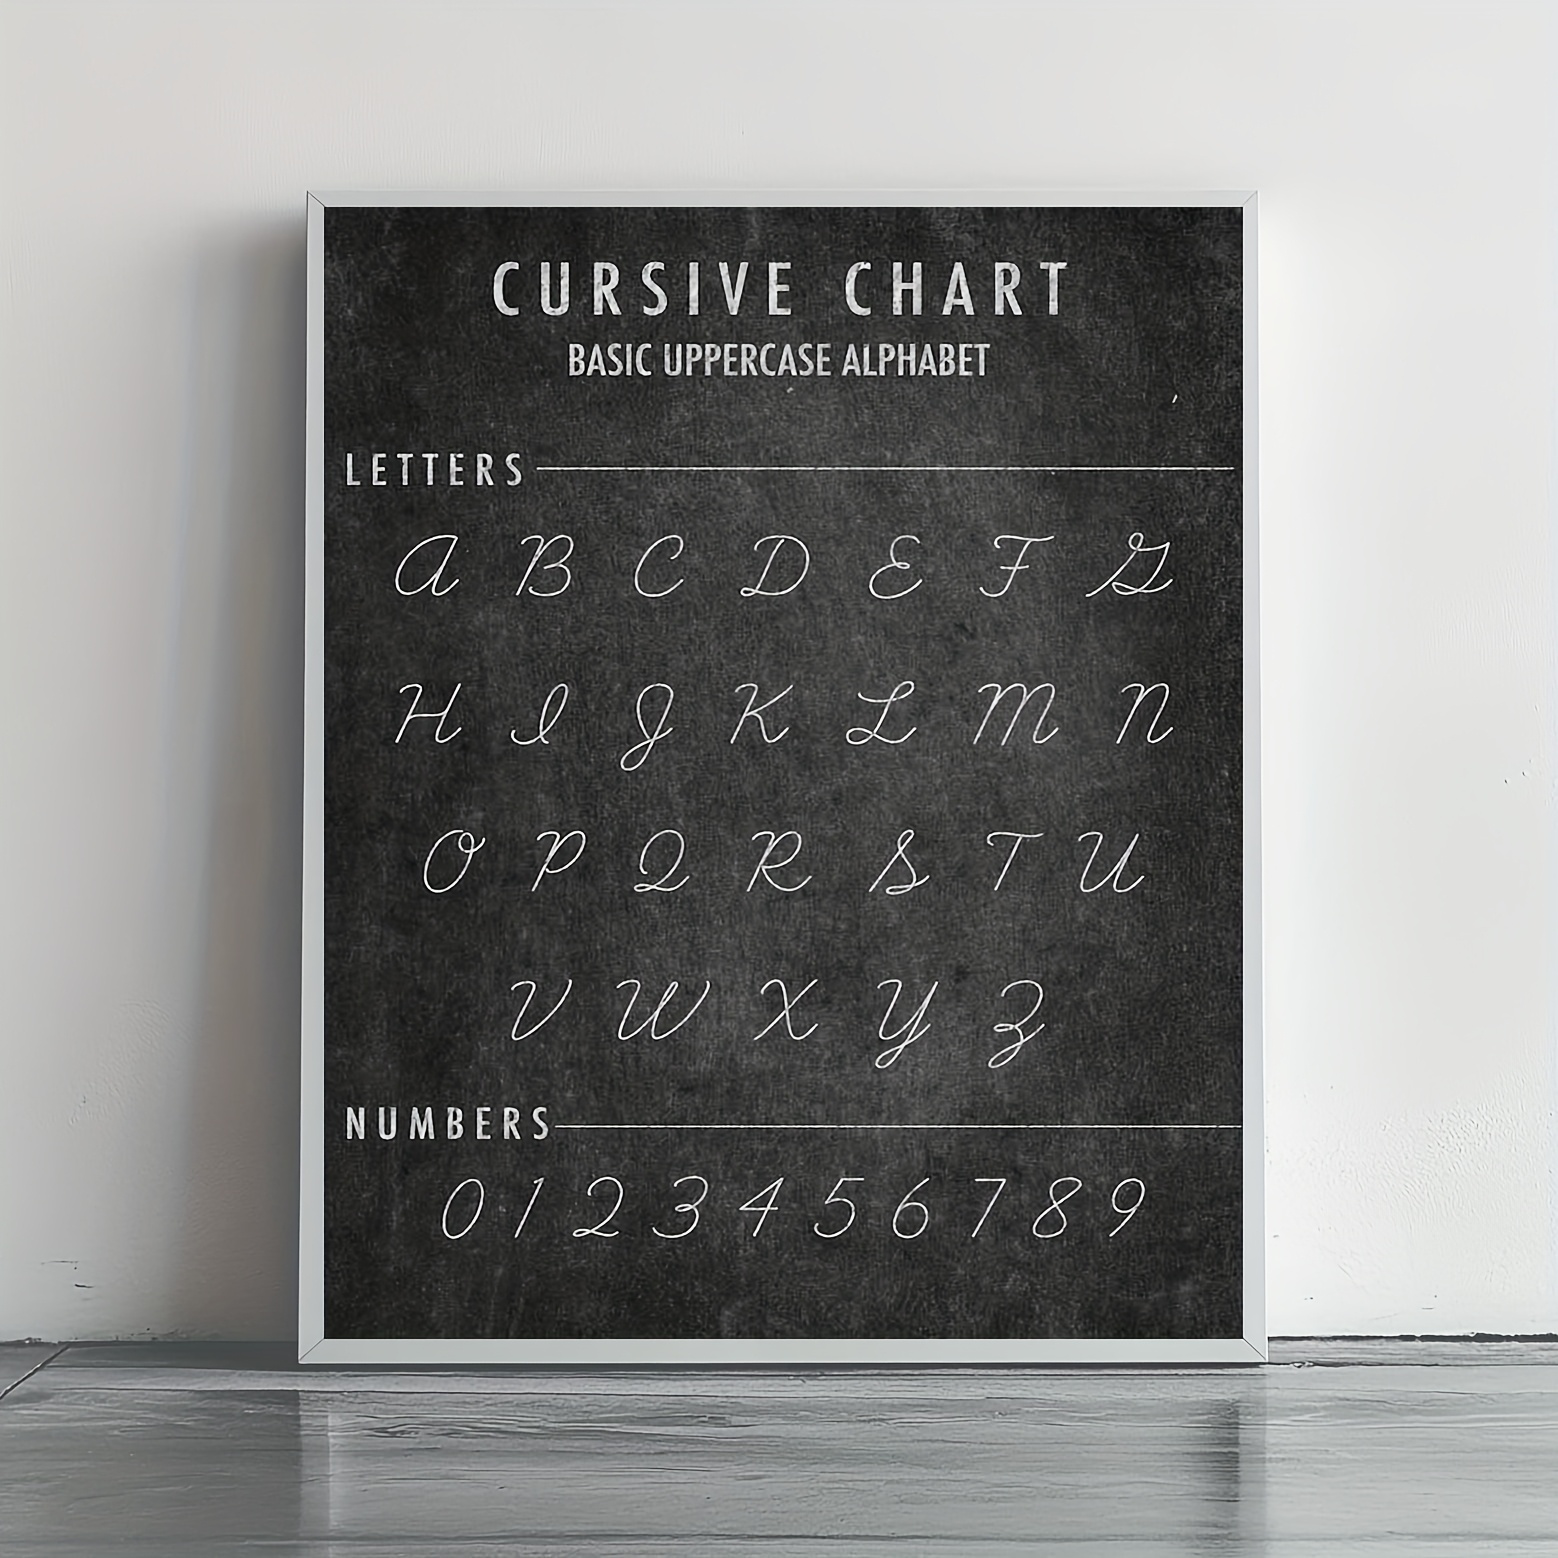 CURSIVE CHART
BASIC UPPERCASE ALPHABET
LETTERS
A B C D E F G
H I J K L M N
O P Q R S T U
V W X Y Z
NUMBERS
0 1 2 3 4 5 6 7 8 9